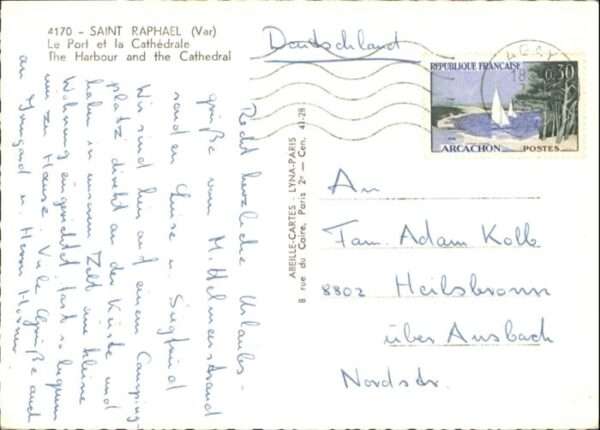 4170 - SAINT RAPHAEL (Var)
Le Port et la Cathédrale
The Harbour and the Cathedral
Deutschland
RÉPUBLIQUE FRANÇAISE
18
0,30
ARCACHON
POSTES
ABEILLE-CARTES - LYNA-PARIS
8 rue du Caire, Paris 2e - Cen. 41-28
Recht herzliche Urlaubs-
grüße vom Mittelmeerstrand
senden Luise u. Siegfried
Wir sind hier auf einem Camping
platz direkt an der Küste und
haben in unserem Zelt eine kleine
Wohnung eingerichtet fast so bequem
wie zu Hause. Viele Grüße auch
an Irmgard u. Herrn
An
Fam. Adam Kolb
8802 Heilsbronn
über Ansbach
Nordstr.